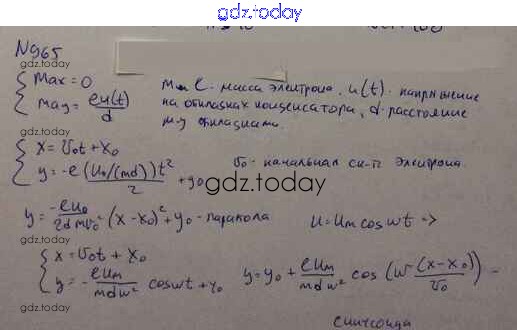 gdz.today
N965
max = 0
may = eu(t)/d
m, e - масса электрона, u(t) - напряжение
на обкладках конденсатора, d - расстояние
м/у обкладками.
gdz.today
x = υ₀t + x₀
y = -e(U₀/(md))t²/2 + y₀
υ₀ - начальная ск-ть электрона.
gdz.today
y = -eU₀/2dmυ₀² (x - x₀)² + y₀ - парабола
U = Um cos ωt =>
gdz.today
x = υ₀t + x₀
y = -eUm/mdω² cosωt + y₀
y = y₀ + eUm/mdω² cos(ω(x-x₀)/υ₀) -
gdz.today
синусоида